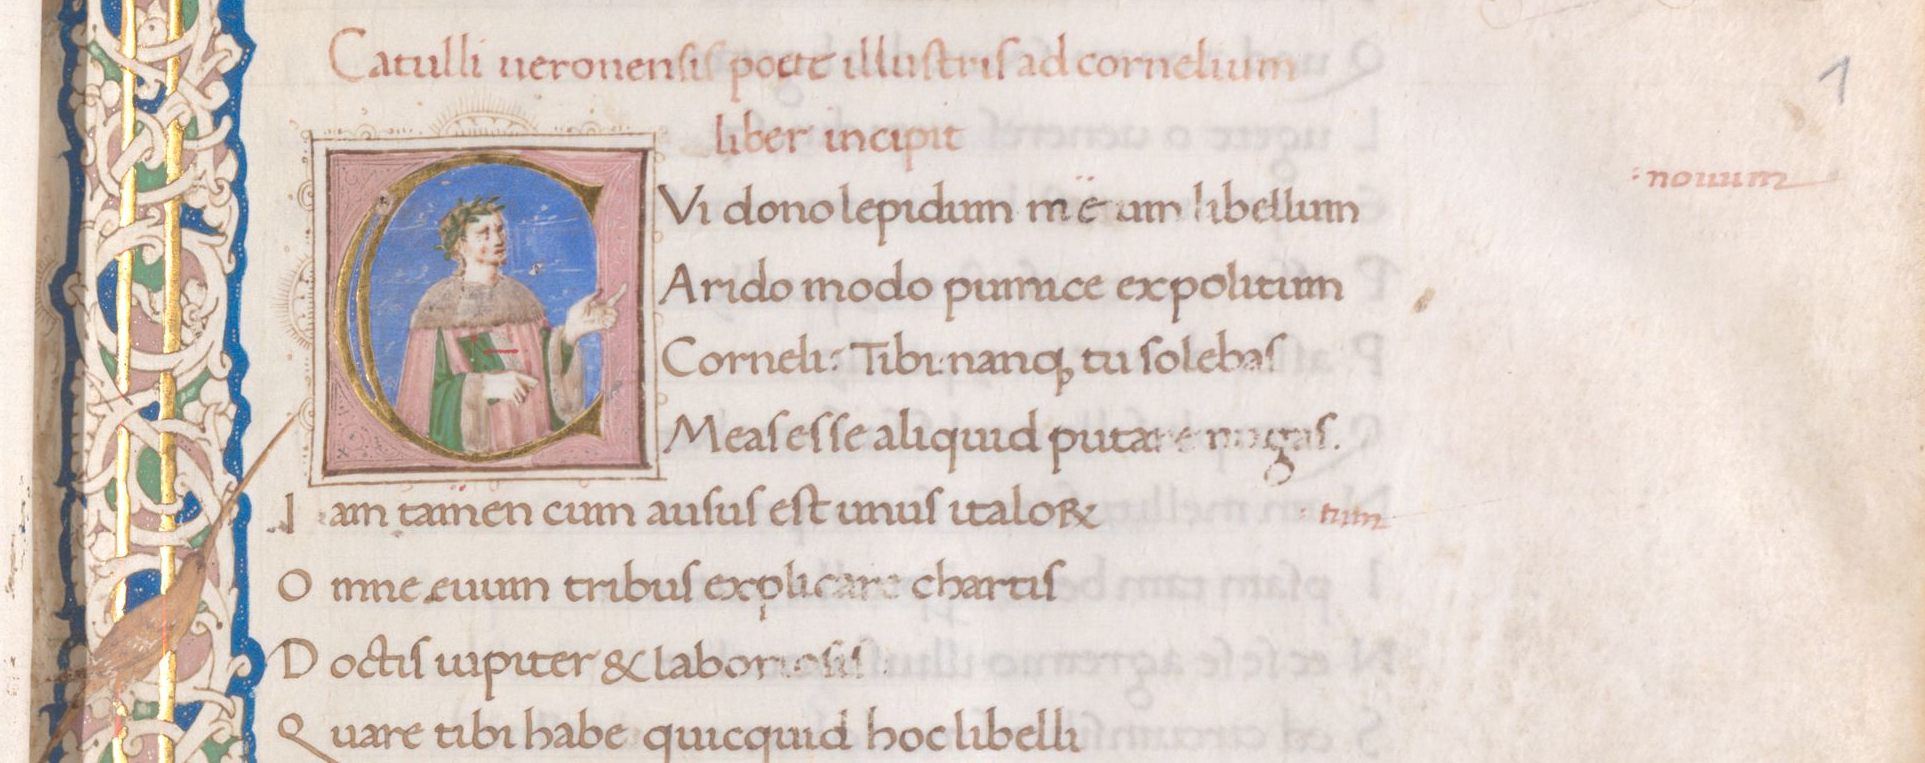 Catulli ueronensis poete illustris ad cornelium
liber incipit
1
CVi dono lepidum meum libellum
novum
Arido modo pumice expolitum
Corneli: Tibi nanq; tu solebas
Meas esse aliquid putare nugas.
Iam tamen cum ausus est unus italoꝝ
tum
Omne euum tribus explicare chartis
Doctis iupiter & laboriosis
Quare tibi habe quicquid hoc libelli